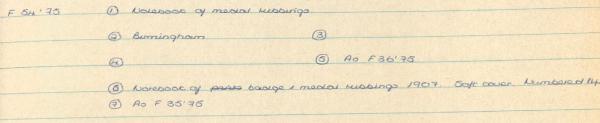 F 54'75 ① Notebook of medal rubbings
② Birmingham ③
④ ⑤ As F36'75
⑥ Notebook of badge & medal rubbings 1907. Soft cover. Numbered
⑦ As F 35'75